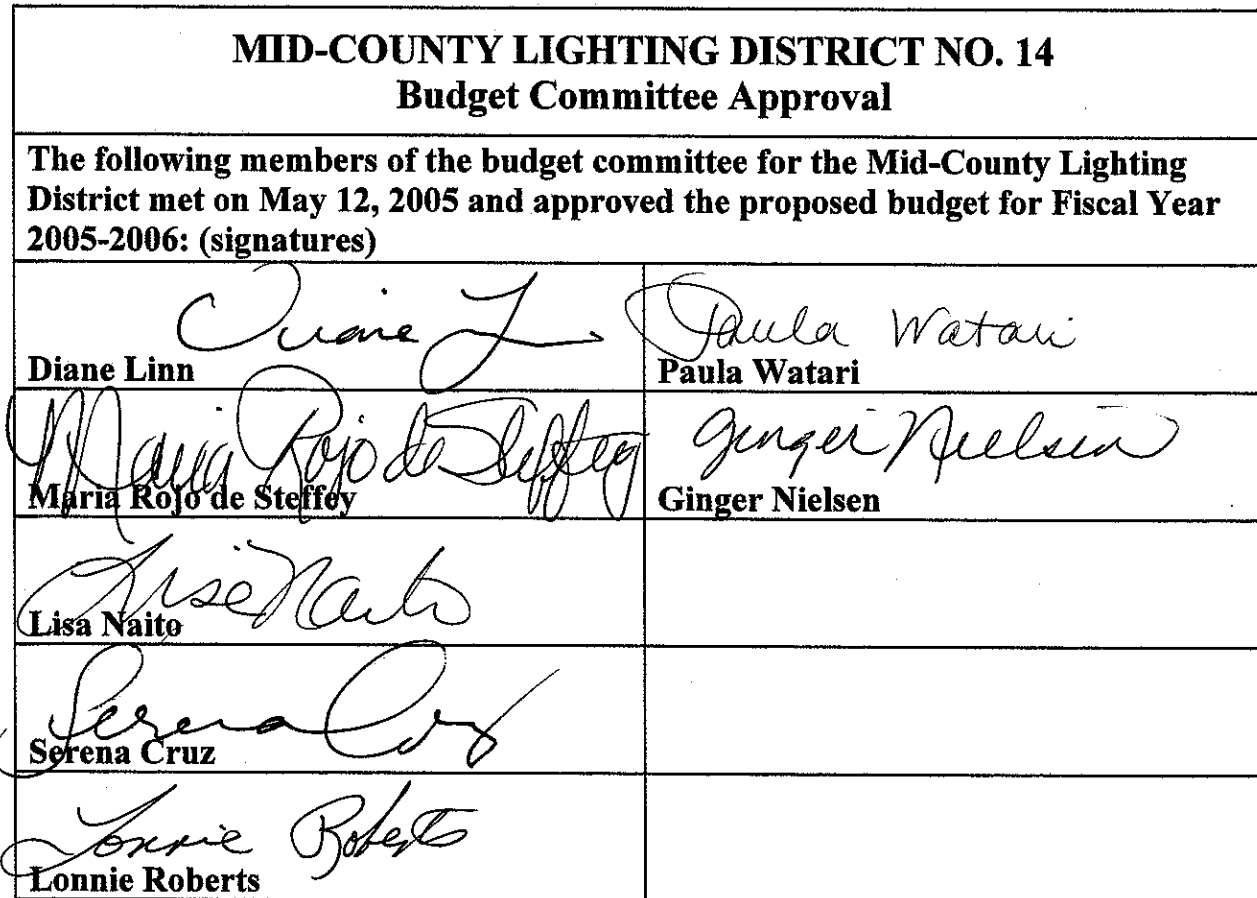 MID-COUNTY LIGHTING DISTRICT NO. 14
Budget Committee Approval
The following members of the budget committee for the Mid-County Lighting
District met on May 12, 2005 and approved the proposed budget for Fiscal Year
2005-2006: (signatures)
Diane L
Diane Linn
Paula Watari
Paula Watari
Maria Rojo de Steffey
Maria Rojo de Steffey
Ginger Nielsen
Ginger Nielsen
Lisa Naito
Lisa Naito
Serena Cruz
Serena Cruz
Lonnie Roberts
Lonnie Roberts